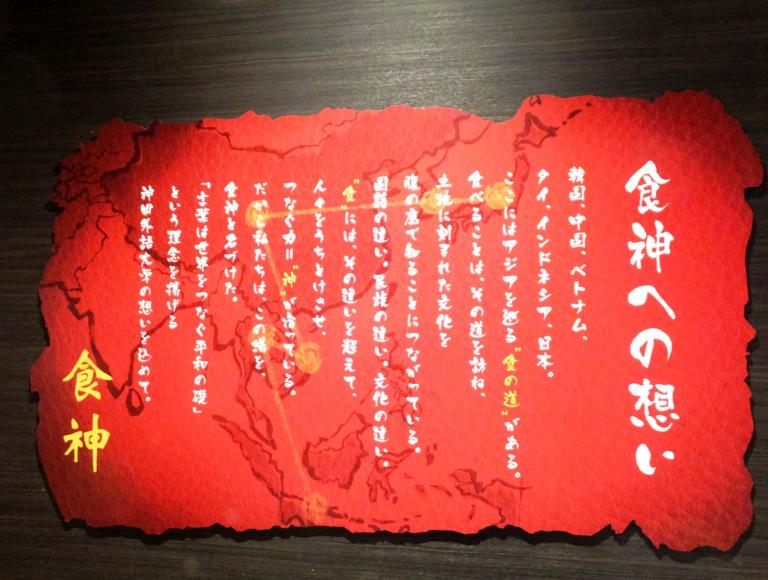 食神への想い
韓国、中国、ベトナム、
タイ、インドネシア、日本。
ここにはアジアを巡る“食の道”がある。
食べることは、その道を訪ね、
土地に刻まれた文化を
腹の底で知ることにつながっている。
国籍の違い。民族の違い。文化の違い。
“食”には、その違いを超えて、
人々をうちとけさせ、
つなぐ力＝“神”が宿っている。
だから私たちは、この場を、
食神と名づけた。
「言葉は世界をつなぐ平和の礎」
という理念を掲げる
神田外語大学の想いを込めて。
食神